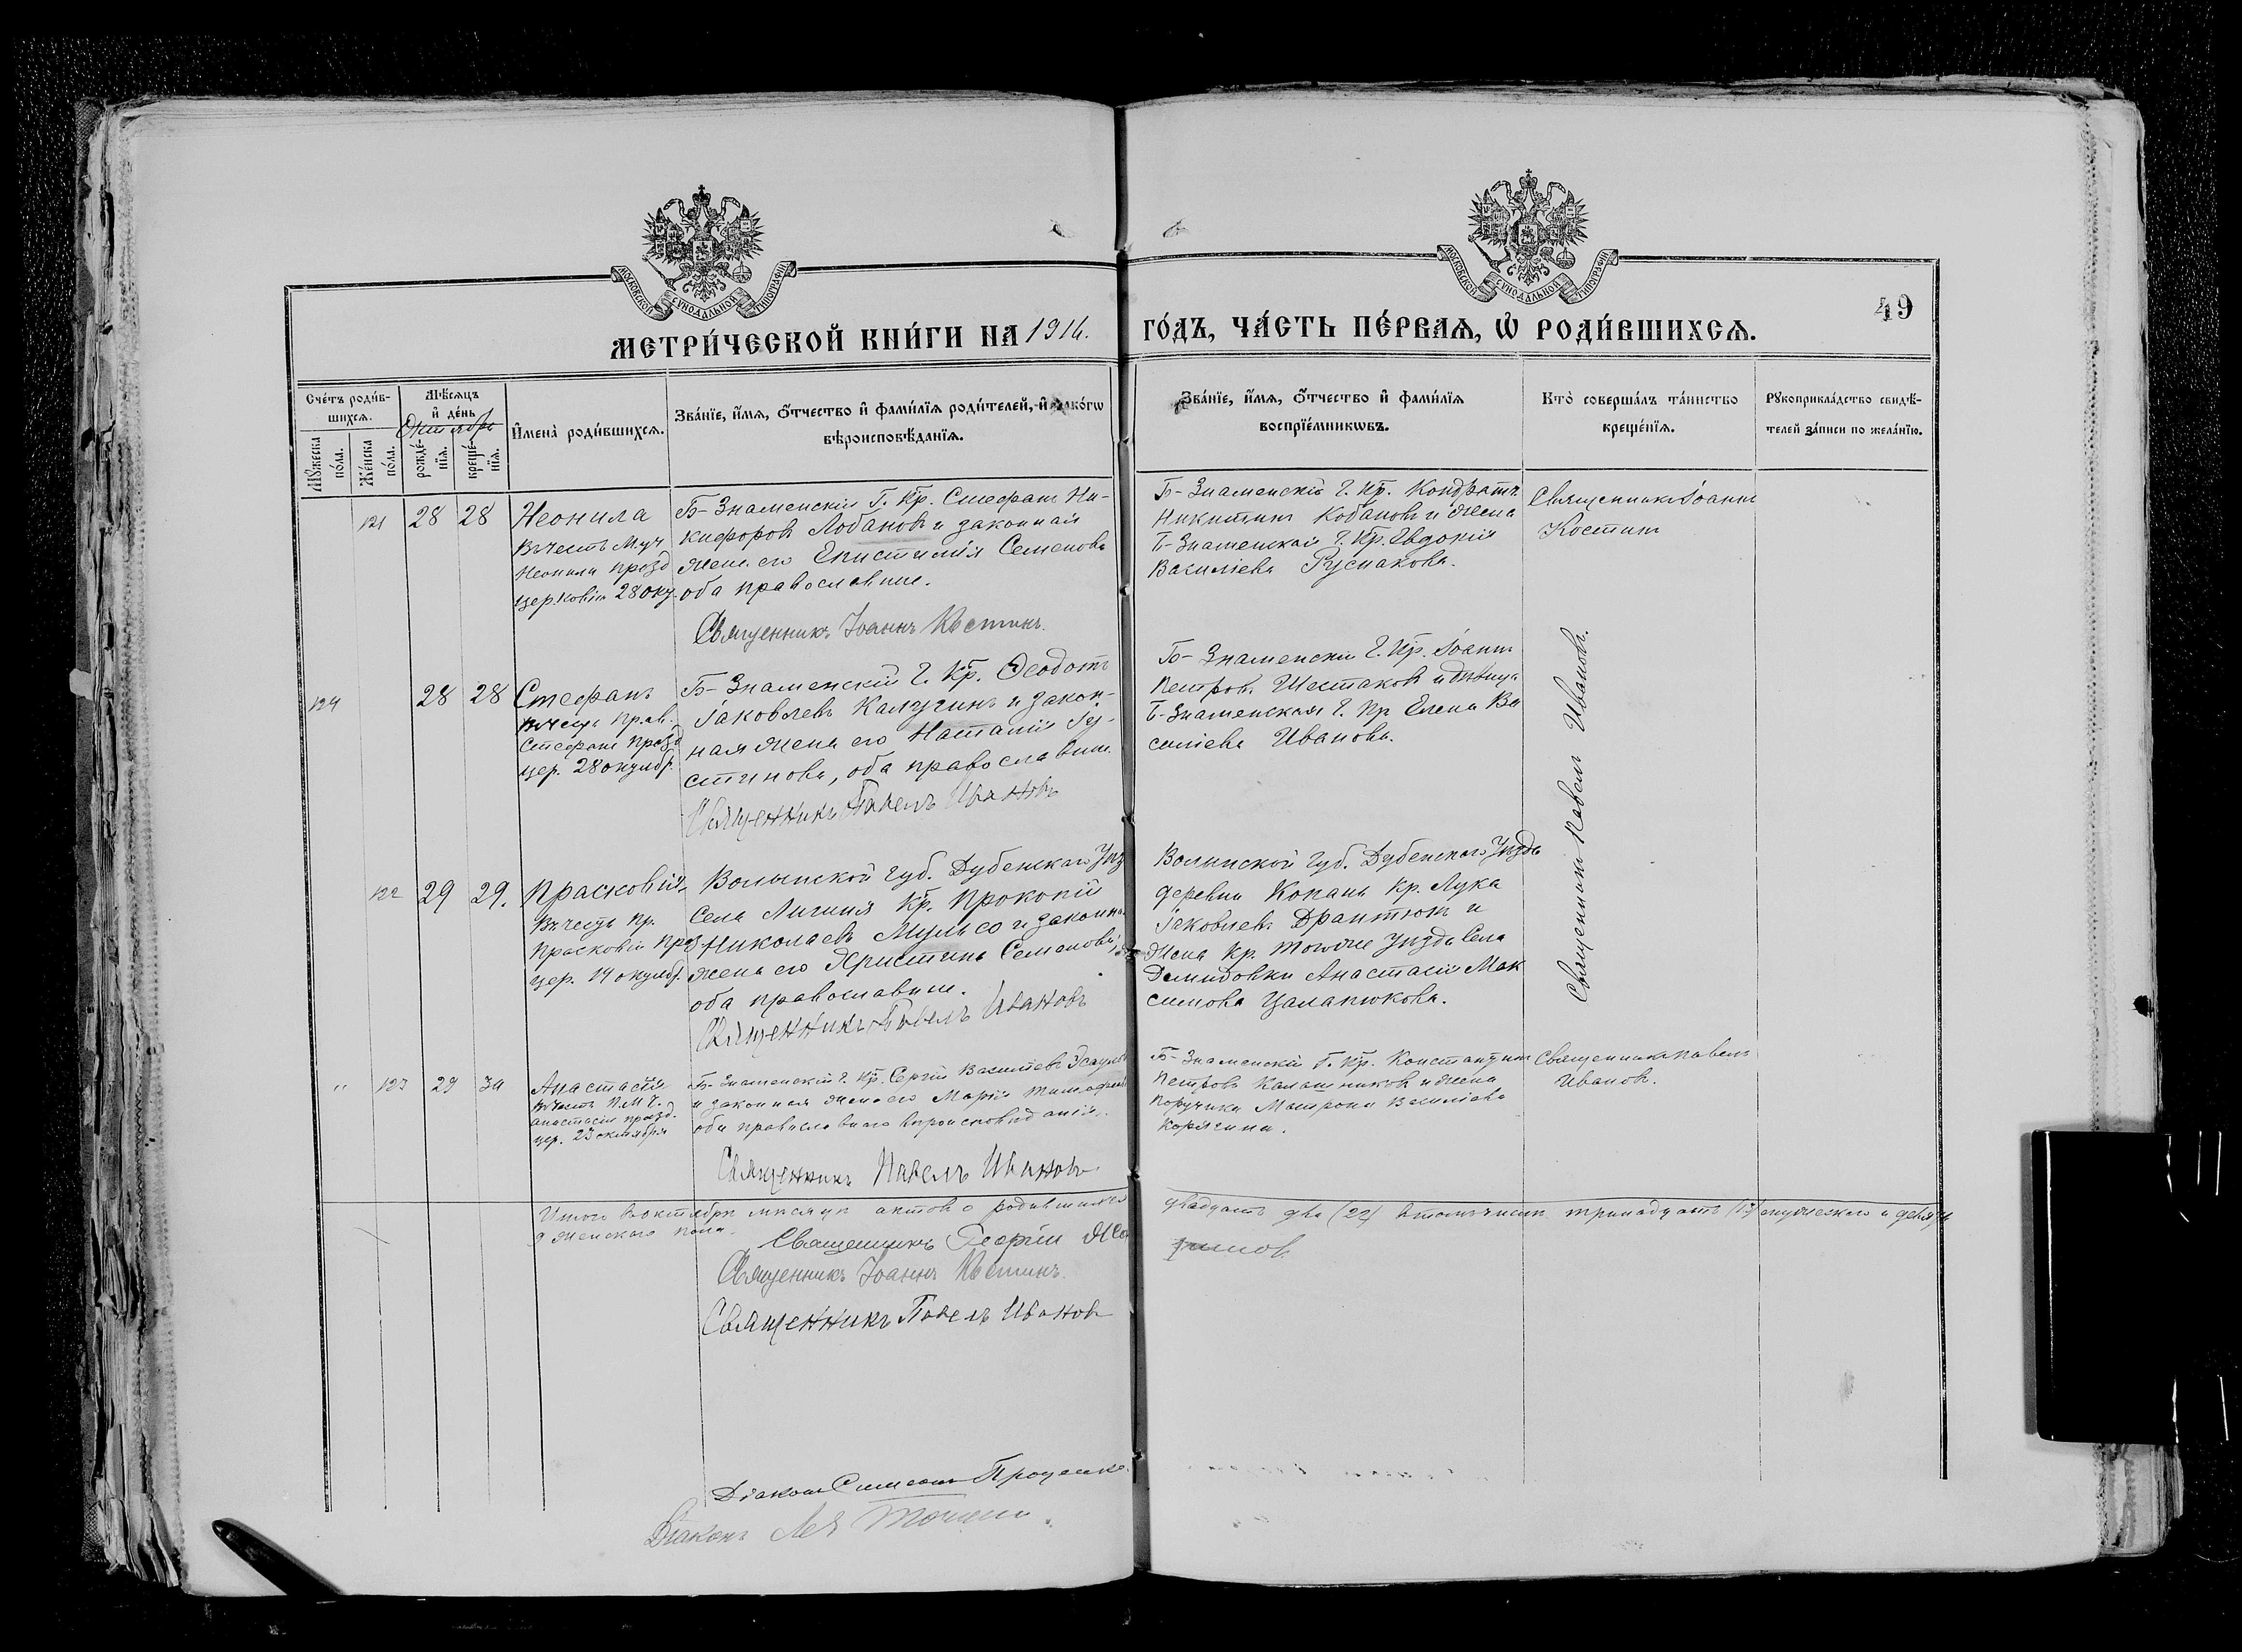 МОСКОВСКОЙ СУНОДАЛЬНОЙ ТИПОГРАФІИ
МОСКОВСКОЙ СУНОДАЛЬНОЙ ТИПОГРАФІИ
49
МЕТРИ́ЧЕСКОЙ КНИ́ГИ НА 1916. ГО́ДЪ, ЧА́СТЬ ПЕ́РВАѦ, Ѡ РОДИ́ВШИХСѦ.
Сче́тъ роди́в-
шихсѧ.
Мꙋжеска по́ла.
Же́нска по́ла.
Мѣ́сѧцъ
и҆ де́нь
Октябрь
рожде́-
нїѧ.
креще́-
нїѧ.
И҆мена̀ роди́вшихсѧ.
Зва́нїе, и҆́мѧ, ѻ҆́тчество и҆ фами́лїѧ роди́телей, и҆ како́гѡ
вѣроисповѣ́данїѧ.
Зва́нїе, и҆́мѧ, ѻ҆́тчество и҆ фами́лїѧ
воспрїе́мникѡвъ.
Кто̀ соверша́лъ та́инство
креще́нїѧ.
Рꙋкоприкла́дство свидѣ́-
телей за́писи по жела́нїю.
121 28 28
Неонила
Въ честь Муч
Неонили празд
церковію 28 окт.
Б-Знаменскій Г. Кр. Стефанъ Ни-
кифоровъ Лобановъ и законная
жена его Епистимія Семенова
оба православные.
Священникъ Іоаннъ Костинъ.
Б-Знаменскій Г. Кр. Кондратъ
Никитинъ Кобановъ и жена
Б-Знаменскаго Г. Кр. Евдокія
Василіева Русманова.
Священникъ Іоаннъ
Костинъ
124 28 28
Стефанъ
Въ честь Прав.
Стефана празд
цер. 28 октябр.
Б-Знаменскій Г. Кр. Ѳеодотъ
Іаковлевъ Калугинъ и закон-
ная жена его Наталія Іу-
стинова, оба православные.
Священникъ Павелъ Ивановъ
Б-Знаменскій Г. Кр. Іоаннъ
Петровъ Шестаковъ и дѣвица
Б-Знаменская Г. Кр. Елена Ва
силіева Иванова.
Священникъ Павелъ Ивановъ.
122 29 29.
Прасковія
Въ честь Пр.
Прасковіи праз
цер. 14 октябр.
Волынской губ. Дубенскаго Уѣз
Села Кр. Прокопій
Николаевъ и законна
жена его Христина Семенова,
оба православные.
Священникъ Павелъ Ивановъ
Волынской губ. Дубенскаго Уѣзда
деревни Копань Кр. Лука
Іаковлевъ и
жена Кр. того же Уѣзда Села
Демидовки Анастасія Мак
симова
" 123 29 30
Анастасія
Въ честь П. М. Ч.
Анастасіи празд.
цер. 29 октября
Б-Знаменскій Г. Кр. Сергій Василіевъ
и законная жена его Марія
оба православнаго вѣроисповѣданія.
Священникъ Павелъ Ивановъ
Б-Знаменскій Г. Кр. Константинъ
Петровъ Калашниковъ и жена
поручика Матрона Василіева
Корягина.
Священникъ Павелъ
Ивановъ.
Итого въ октябрѣ мѣсяцѣ актовъ о родившихся двадцать два (22) въ томъ числѣ тринадцать (13) мужескаго и девять
9 женскаго пола.
Священникъ Георгій
Священникъ Іоаннъ Костинъ.
Священникъ Павелъ Ивановъ
Діаконъ Симеонъ Проценко.
Діаконъ